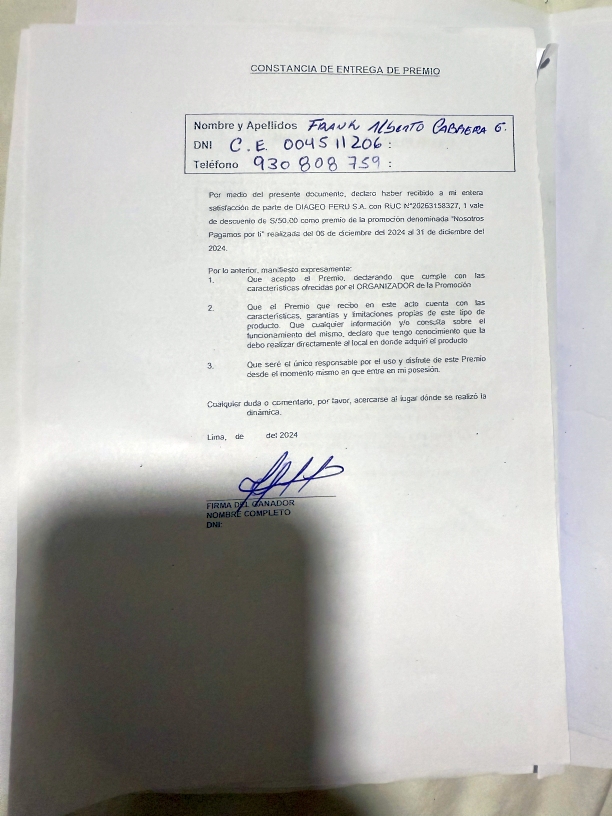 CONSTANCIA DE ENTREGA DE PREMIO
Nombre y Apellidos FRANK Alberto CABRERA G.
DNI C.E. 004511206 :
Teléfono 930 808 759 :
Por medio del presente documento, declaro haber recibido a mi entera
satisfacción de parte de DIAGEO PERU S.A. con RUC N°20263158327, 1 vale
de descuento de S/50.00 como premio de la promoción denominada "Nosotros
Pagamos por ti" realizada del 06 de diciembre del 2024 al 31 de diciembre del
2024.
Por lo anterior, manifiesto expresamente:
1. Que acepto el Premio, declarando que cumple con las
características ofrecidas por el ORGANIZADOR de la Promoción
2. Que el Premio que recibo en este acto cuenta con las
características, garantías y limitaciones propias de este tipo de
producto. Que cualquier información y/o consulta sobre el
funcionamiento del mismo, declaro que tengo conocimiento que la
debo realizar directamente al local en donde adquirí el producto
3. Que seré el único responsable por el uso y disfrute de este Premio
desde el momento mismo en que entre en mi posesión.
Cualquier duda o comentario, por favor, acercarse al lugar dónde se realizó la
dinámica.
Lima, de del 2024
FIRMA DEL GANADOR
NOMBRE COMPLETO
DNI: